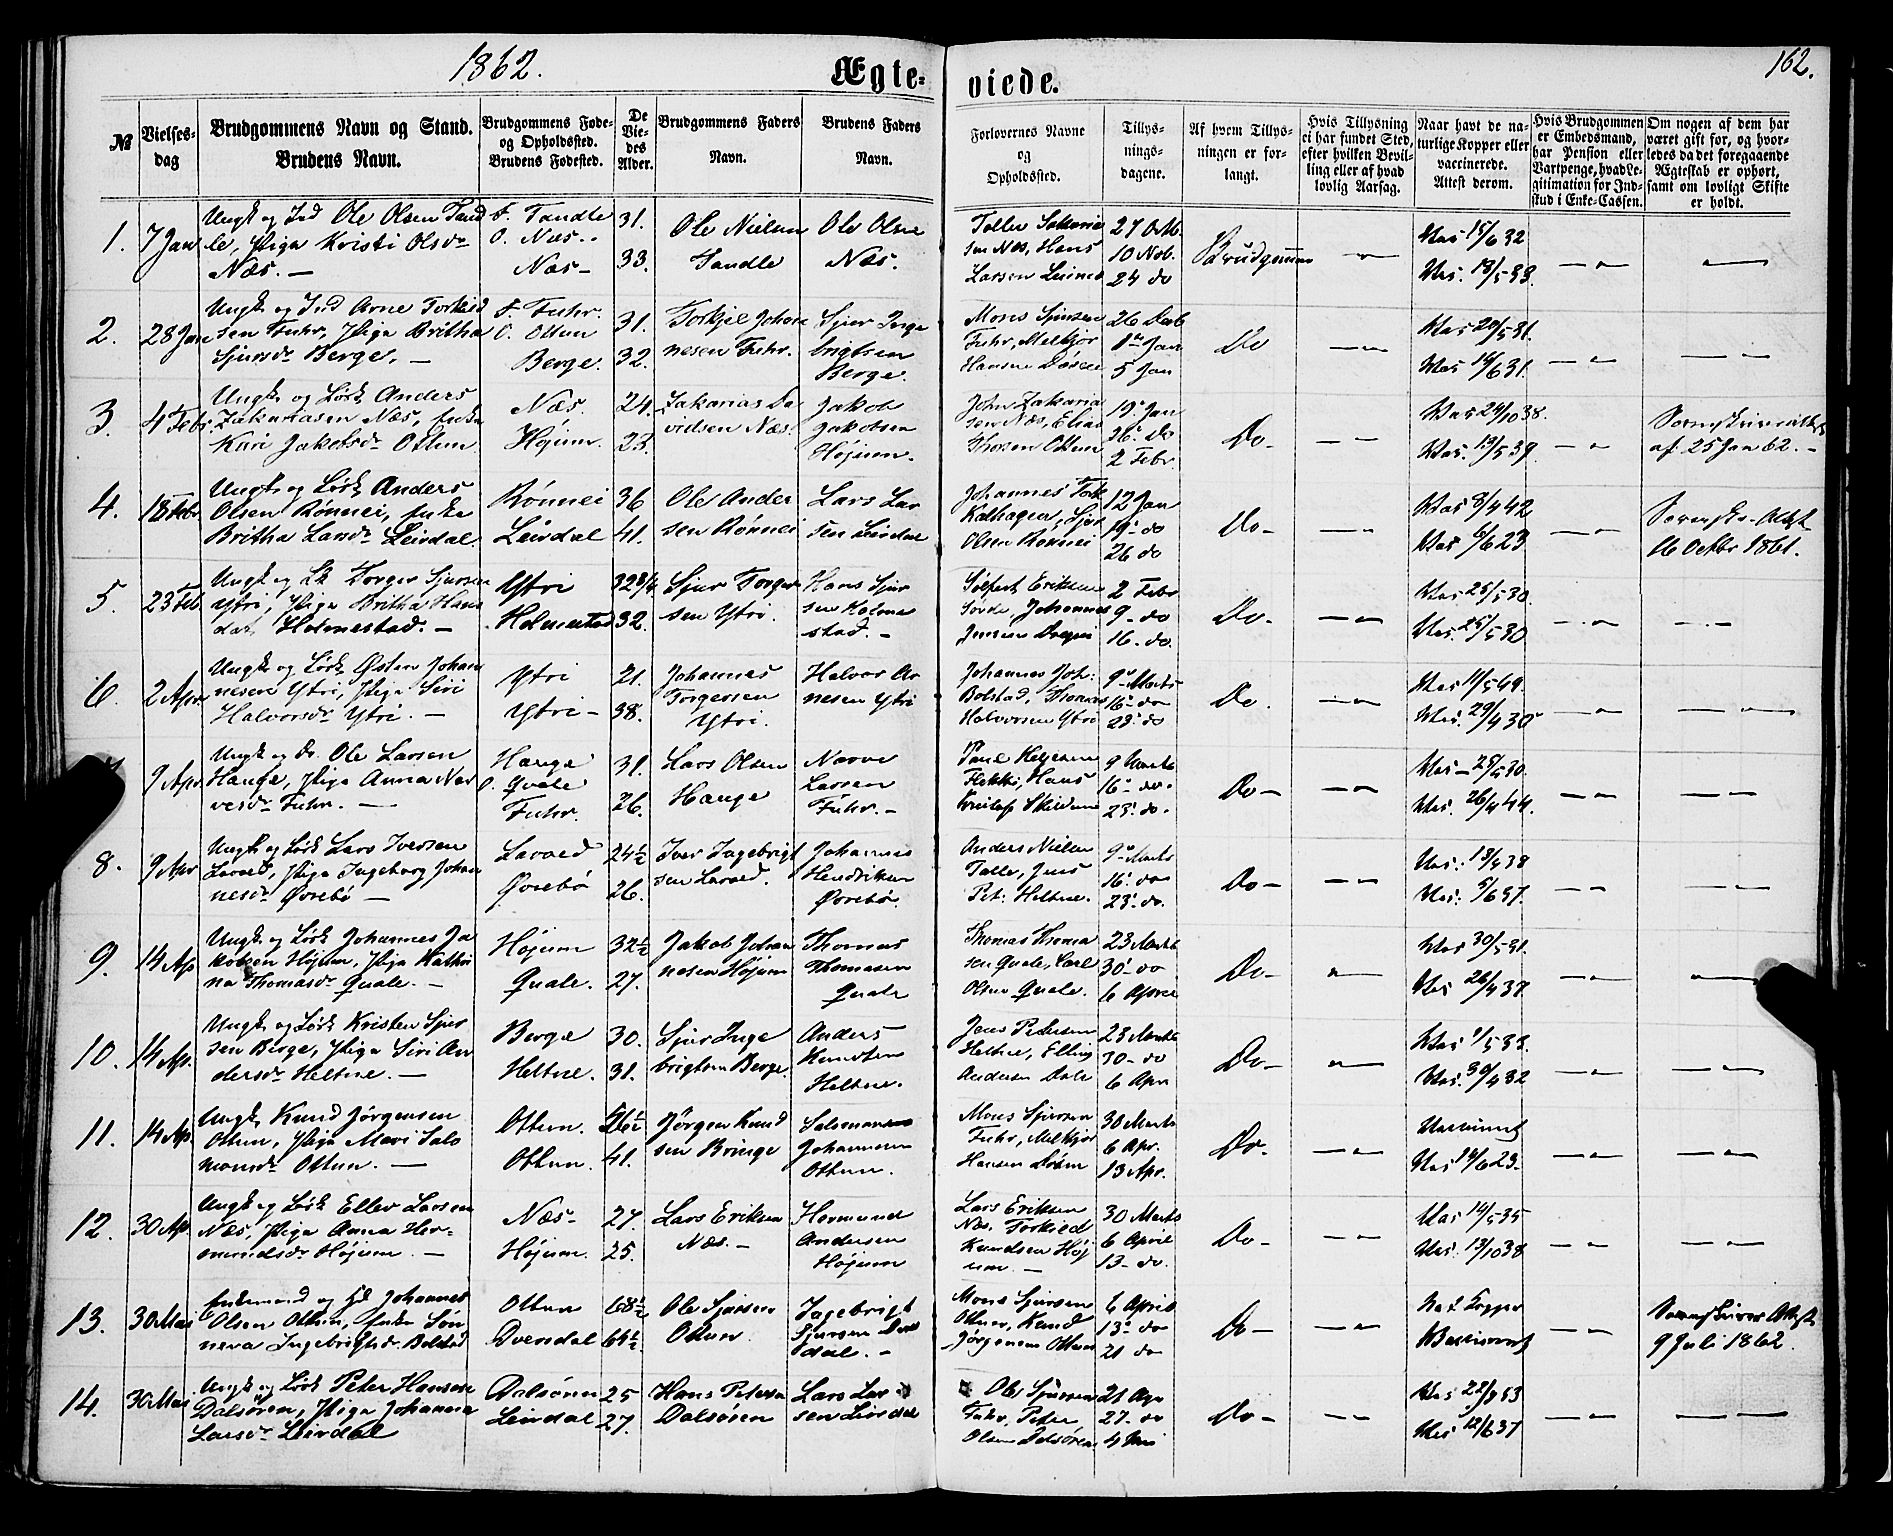 1862.
Ægte-
viede.
162.
№
Vielses-
dag
Brudgommens Navn og Stand.
Brudens Navn.
Brudgommens Føde-
og Opholdssted.
Brudens Fødested.
De
Vie-
des
Alder.
Brudgommens Faders
Navn.
Brudens Faders
Navn.
Forlovernes Navne
og
Opholdssted.
Tillys-
nings-
dagene.
Af hvem Tillys-
ningen er for-
langt.
Hvis Tillysning
ei har fundet Sted,
efter hvilken Bevil-
ling eller af hvad
lovlig Aarsag.
Naar havt de na-
turlige Kopper eller
vaccinerede.
Attest derom.
Hvis Brudgommen
er Embedsmand,
har Pension eller
Vartpenge, hvad Le-
gitimation for Ind-
skud i Enke-Cassen.
Om nogen af dem har
været gift for, og hvor-
ledes da det foregaaende
Ægteskab er ophørt,
samt om lovligt Skifte
er holdt.
1. 7 Jan
Ungk. og Ind Ole Olsen Tand
le, Piga Kristi Olsdr
Næs. —
F. Tandle
O. Næs.
Næs —
31.
33.
Ole Nielsen
Tandle
Ole Olsen
Næs.
Toller Sakaria
sen Næs, Hans
Larsen
27 Octb.
10 Nob.
24 do
Brudgommen
Vac 15/6 32
Vac. 13/5 33.
2. 28 Jan
Ungk og Ind Arne Torkild
sen Fuhr, Piga Britha
Sjursdr Berge. —
F. Fuhr.
O. Ottum
Berge.
31.
32.
Torkjel Johan
nesen Fuhr.
Sjur Inge
brigtsen
Berge.
Mons Sjursen
Fuhr, Melkjor
Hansen
26 Decb
1ste Jan
5 Jan
Do
Vac 20/5 31.
Vac 14/6 31.
3. 4 Febr
Ungk. og Løsk Anders
Zakariasen Næs, Enke
Kari Jakobsdr Ottum
Næs.
Højum.
24.
23.
Zakarias Da
vidsen Næs.
Jakob
Jakobsen
Højum.
John Zakaria
sen Næs, Elias
Thorsen Ottum
19. Jan
26. Do
2 Febr
Do.
Vac 24/10 38.
Vac. 13/5 39.
af 25 Jan 62. —
4. 18 Febr
Ungk. og Løsk Anders
Olsen Rønnei, Enke
Britha Larsdr Leirdal.
Rønnei
Leirdal
36
41.
Ole Ander
sen Rønnei
Lars Lar
sen Leirdal
Johannes Tork
Kalhagen, Sjur
Olsen Rønnei
12 Jan
19. do
26 do
Do-
Vac 8/4 42
Vac 6/6 23
16 Octbr 1861.
5. 23 Feb
Ungk og Lk Torger Sjursen
Ytri, Piga Britha Hans
datr Holmestad. —
Ytri
Holmestad
32 3/4
32.
Sjur Torger
sen Ytri.
Hans Sjur
sen Holme
stad. —
Eriksen
Johannes
Jensen
2 Febr
9 - do
16 - do.
Do-
Vac 25/5 30.
Vac. 25/5 30
6. 2 Apr.
Ungk og Løsk Østen Johan
nesen Ytri, Piga Siri
Halvorsdr Ytri. —
Ytri
Ytri —
21.
38.
Johannes
Torgersen
Ytri.
Halvor Ar
nesen Ytri
Johannes Joh:
Bolstad, Thomas
Halvorsen Ytri
9de Marts
16 - do
23. do
Do.
Vac 11/5 49.
Vac. 29/4 30
9 Apr.
Ungk og Do. Ole Larsen
Hauge, Piga Anna Nar
vesdr Fuhr. —
Hauge
O. Qvale
Fuhr.
31.
26.
Lars Olsen
Hauge
Narve
Larsen
Fuhr. —
Hans
9 Marts
16 - do.
23. do.
Do-
Vac — 25/5 30.
Vac. 26/4 44.
8. 9 Apr
Ungk. og Løsk Lars Iversen
Lavoed, Piga Ingeborg Johan
nesdr Øvrebø —
Lavoed
Øvrebø
24½
26.
Iver Ingebrigt
sen Lavoed.
Johannes
Hendriksen
Øvrebø.
Anders Nielsen
Talle, Jens
Pet: Heltne.
9de Marts
16. do
23. do.
Do-
Vac. 13/4 38
Vac. 5/6 37.
9. 14 Ap
Ungk og Løsk Johannes Ja
kobsen Højum, Piga Kathri
na Thomasdr Qvale. —
Højum
Qvale.
32½
27.
Jakob Johan
nesen Højum
Thomas
Thomasen
Qvale
Thomas Thoma
sen Qvale, Carl
Olsen Qvale.
23 Marts
30 - do
6 April
Do-
Vac 30/5 31.
Vac 26/4 37.
10. 14 Ap.
Ungk. og Løsk Kristen Sjur
sen Berge, Piga Siri An
dersdr Heltne. —
Berge
Heltne.
30.
31.
Sjur Inge
brigtsen Berge.
Anders
Knudsen
Heltne.
Jens Petersen
Heltne, Elling
Andersen Dale
23 Marts
30 - do
6 Apr
Do-
Vac 1/5 33.
Vac. 30/4 32
11. 14 Ap.
Ungk. Knud Jørgensen
Ottum, Piga Mari Salo
monsdr Ottum. —
Ottum.
Ottum.
41.
Jørgen Knud
sen Bringe
Salomon
Johannesen
Ottum.
Mons Sjursen
Fuhr, Melkjor
Hansen
30 Marts
6 Apr.
13 Apr.
Do-
Vaccineret
Vac 14/6 23.
12. 30 Ap.
Ungk og Løsk Eller Larsen
Næs, Piga Anna Her-
mundsdr Højum. —
Næs-
Højum.
27.
25.
Lars Eriksen
Næs. —
Hermund
Andersen
Højum
Lars Eriksen
Næs. Torkild
Knudsen Høj
um. —
30 Marts
6 April
13 - do.
Do-
Vac 14/5 35
Vac. 13/10 38
13. 30 Mai
Enkemand og Johannes
Olsen Ottum, Enke Søn
neva Ingebrigtsdr Bolstad
Ottum
Dvendal
68½
64½
Ole Sjursen
Ottum.
Ingebrigt
Sjursen Dven
dal. —
Mons Sjursen
Ottum, Knud
Jørgensen Ottum
6 April
13. do
21 do
Do-
Nat. Kopper
Vaccineret
9 Juli 1862.
14. 30 Mai
Ungk og Løsk Peter Hansen
Dalsøren, Piga Johanna
Larsdr Leirdal
Dalsøren
Leirdal
25
27.
Hans Petersen
Dalsøren
Lars Lar
sen Leirdal
Ole Sjursen
Fuhr, Peter
Olsen Dalsøren
21 Apr
27. do
4 Mai
Do-
Vac 12/6 37